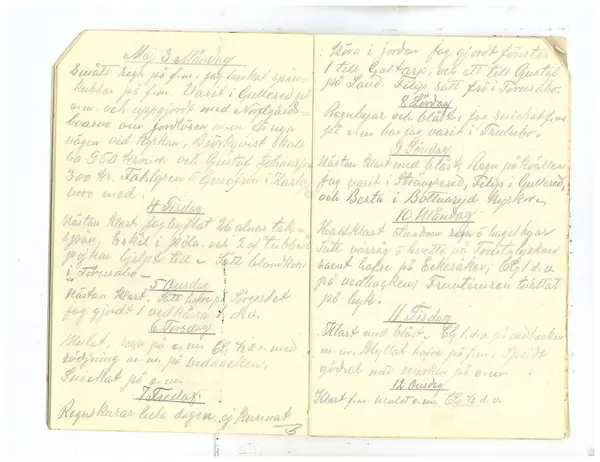 Maj 3 Måndag
Smått regn på f.m. jag huskat spån-
kubbar på f.m. Varit i Gullered på
e.m. och uppgjordt med Nordgårds-
boarne om jordlösen m.m. te nya
vägen vid Kyrkan, Björkqvist skall
ha 950 Kronor och Gustaf Johansson
300 Kr. Fählgren & Gustafson i Karlsbo
voro med.
4 Tisdag
Nästan Klart. Jag hyflat 26 alnar tak-
spån; Eskil i Pöla och 2 af
pojkar hjelpt till. Satt blandkorn
i Törnsabo
5 Onsdag
Nästan Klart. Satt hafre i
jag gjordt 1 vedkärra t. d.v.
6 Torsdag
Mulet, regn på e.m. Elg ½ d.v. med
rödjning m.m. på vedbacken,
Snickat på e.m.
7 Fredag.
Regnskurar hela dagen, ej kunnat
köra i jorden. Jag gjordt fönster
1 till Galtarp, och ett till Gustaf
på Sand. Filip satt frö i Törnsabo.
8 Lördag
Regnbyar och blåst, jag snickat f.m.
på e.m. har jag varit i Trullebo.
9 Söndag
Nästan Klart med blåst, Regn på Kvällen
Jag varit i Strängsered, Filip i Gullered,
och Berta i Böttnaryd Kyrka.
10 Måndag
Halfklart stundom regn & hagelbyar
Satt vårråg & hvette på
samt hafre på Ekesåker; Elg 1 d.v.
på vedbacken; Fruntimren tvättat
på byk.
11 Tisdag
Klart med blåst. Elg 1 d.v. på vedbacken
m.m. Myllat hafre på f.m. Spridt
gödsel med maskin på e.m.
12 Onsdag
Klart f.m. mulet e.m. Elg ½ d.v.